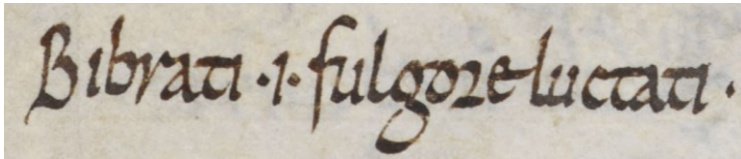 Bibrati ·i· fulgore luctati ·